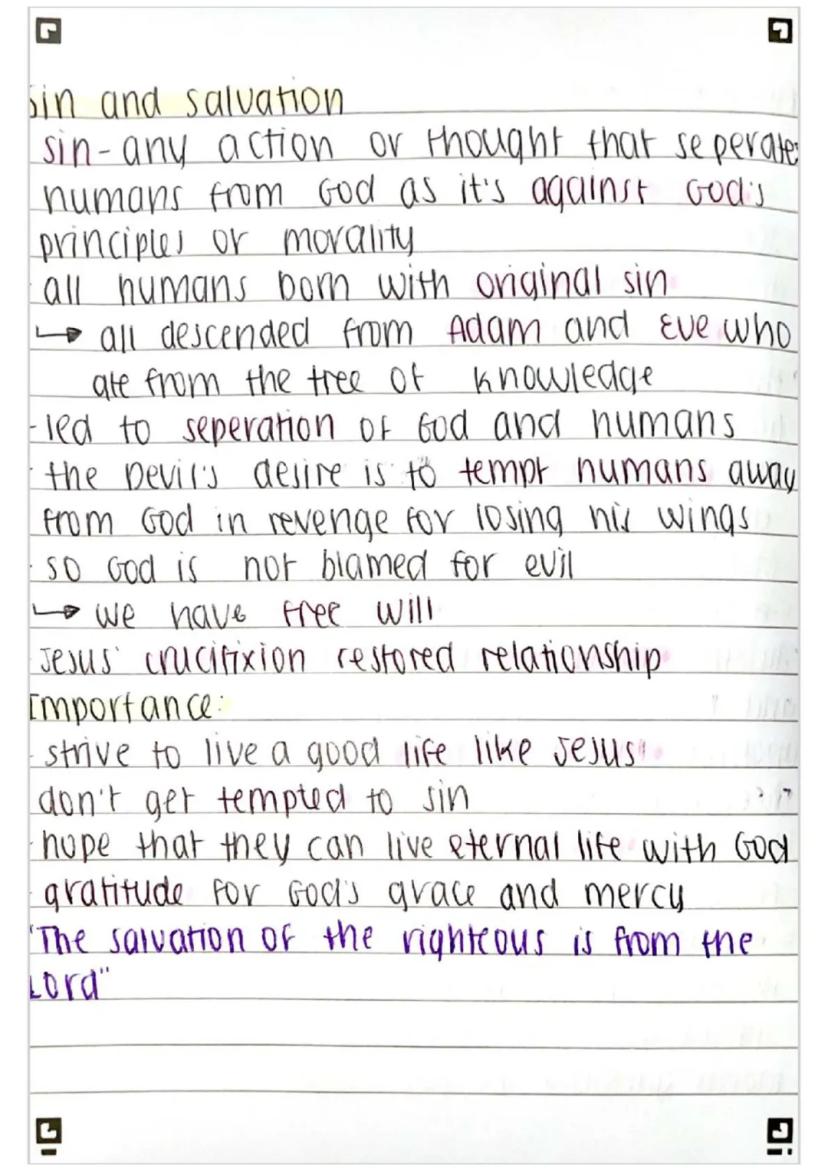 Sin and salvation
sin - any action or thought that seperates
humans from God as it's against God's
principles or morality
- all humans born with original sin
↳ all descended from Adam and Eve who
ate from the tree of knowledge
- led to seperation of God and humans
- the Devil's desire is to tempt humans away
from God in revenge for losing his wings
- so God is not blamed for evil
↳ we have free will
Jesus' crucifixion restored relationship
Importance:
- strive to live a good life like Jesus'
don't get tempted to sin
- hope that they can live eternal life with God
- gratitude for God's grace and mercy
"The salvation of the righteous is from the
Lord"